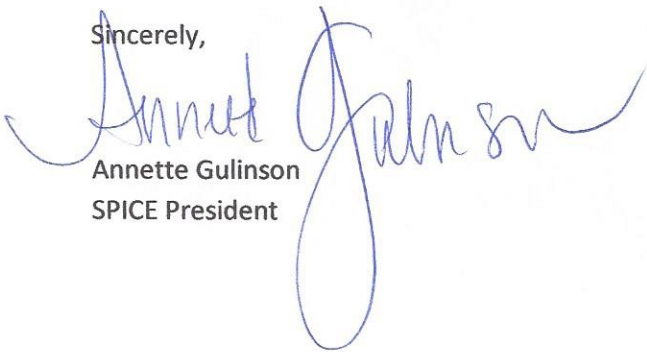 Sincerely,
Annette Gulinson
Annette Gulinson
SPICE President